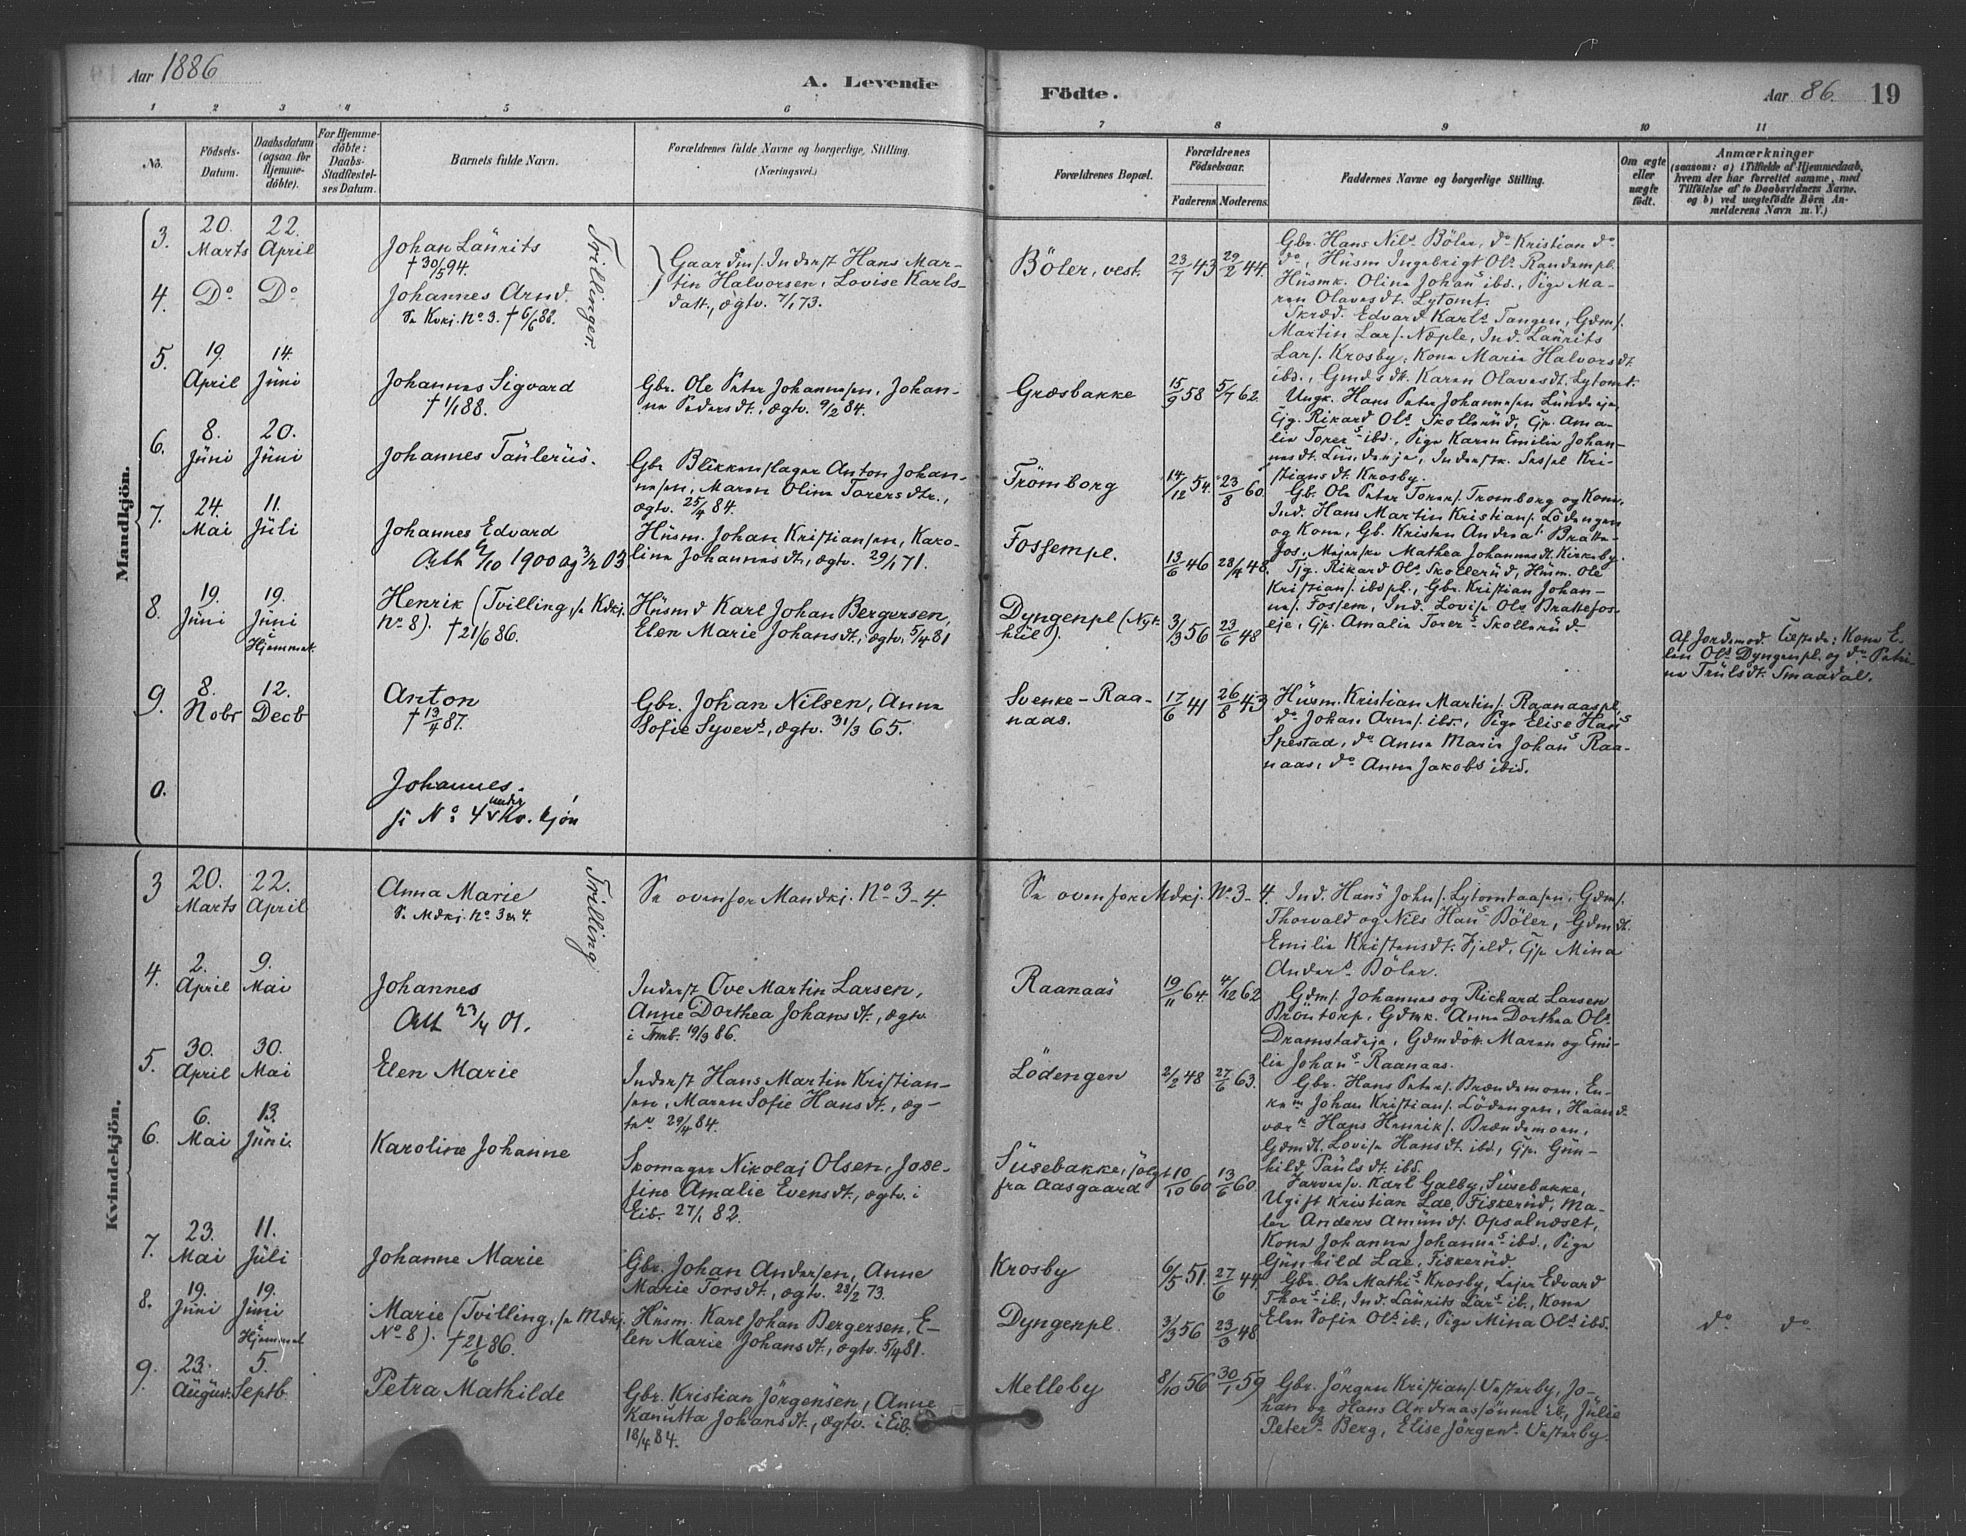 Aar 1886
A. Levende
Födte.
Aar 86. 19
1 2 3 4 5 6 7 8 9 10 11
No.
Födsels-
Datum.
Daabsdatum
(ogsaa for
Hjemme-
döbte).
For Hjemme-
döbte:
Daabs-
Stadfæstel-
ses Datum.
Barnets fulde Navn.
Forældrenes fulde Navne og borgerlige Stilling.
(Næringsvei.)
Forældrenes Bopæl.
Forældrenes
Födselsaar.
Faderens. Moderens.
Faddernes Navne og borgerlige Stilling.
Om ægte
eller
uægte
födt.
Anmærkninger
(saasom: a) i Tilfælde af Hjemmedaab,
hvem der har forrettet samme, med
Tilföielse af to Daabsvidners Navne.
og b) ved uægtefödte Börn An-
melderens Navn m. V.)
Mandkjön.
3. 20. Marts 22. April
Johan Laurits
† 30/5 94.
Trillinger.
Gaardm/. Inderst Hans Mar-
tin Halvorsen, Lovise Karls-
datt., ægtv. 7/1 73.
Böler, vest. 23/7 43 29/2 44.
Gbr. Hans Nils. Böler, do Kristian do.
do, Husm Ingebrigt Ols. Randempl.
Husmk. Olina Johans ibd., Pige Ma-
ren Olavesdt. Lytomt.
4. Do Do
Johannes Arnd.
Se Kvkj. No. 3. † 6/6 88.
Skræd. Edvard Karls. Tangen, Gdm/.
Martin Lar/. Næple, Ind. Laurits
Lar/. Krosby, Kone Maria Halvorsdt
ibd., Gmdsdt. Karen Olavesdt. Lytomt.
5. 19. April 14. Juni
Johannes Sigvard
† 1/1 88.
Gbr. Ole Peter Johannesen, Johan-
ne Pedersdt., ægtv. 9/2 84.
Græsbakke 15/9 58 5/7 62.
Ungk. Hans Peter Johannesen Lundeeje,
Gg. Rikard Ols. Skollerud, Gp. Ama-
lie Torers ibd., Pige Karen Emilie Johan-
nesdt. Lundeeje, Inderstk. Sessel Kri-
stiansdt. Krosby.
6. 8. Juni 20. Juni
Johannes Taulerus.
Gbr Blikkenslager Anton Johan-
nesen, Maren Olina Torersdtr.,
ægtv. 25/4 84.
Trömborg 14/12 54. 23/8 60.
Gb. Ole Peter Torer/. Tromborg og Kone,
Ind. Hans Martin Kristians/. Lödengen
og Kone, Gb. Kristen Andreas Bratte-
fos, Mejerske Mathea Johannesdt. Kirkeby.
7. 24. Mai 11. Juli
Johannes Edvard
Att 4/10 1900 og 3/2 03
Husm. Johan Kristiansen, Karo-
line Johannesdt., ægtv. 29/1 71.
Fossempl. 13/6 46 28/4 48.
Tjg. Rikard Ols Skollerud, Husm. Ole
Kristian/. ibdpl., Gbr. Kristian Johan-
nes/. Fossem, Ind. Lovise Ols Brattefos-
eje, Gp. Amalie Torers Skollerud.
8. 19. Juni 19. Juni i Hjemmet
Henrik (Tvilling, se Kdkj.
No 8). † 21/6 86.
Husmd Karl Johan Bergersen,
Elen Marie Johansdt., ægtv. 5/4 81
Dyngenpl (Nyt-
hul). 3/3 56 23/6 48
Af Jordemod. Tilstede: Kone E-
len Ols Dyngenpl. og do Petri-
ne Trulsdt. Smaadal.
9. 8. Nobr 12. Decb
Anton
† 13/4 87.
Gbr. Johan Nilsen, Anna
Sofie Syvers., ægtv. 31/3 65.
Svenke-Raa-
naas. 17/6 41 26/8 43
Husm. Kristian Martin/. Raanaaspl,
do Johan Arne/. ibd., Pige Elise Hans
Spestad, do Anna Marie Johans Raa-
naas, do Anna Jakobs ibid.
0.
Johannes.
se No: 4 under Kv. kjön
Kvindekjön.
3 20. Marts 22. April
Anna Marie
Se Mdkj. No 3 og 4.
Trilling
Se ovenfor Mandkj. No 3-4
Se ovenfor Mdkj. No 3-4.
Ind. Hans John/. Lytomtaasen, Gdm/.
Thorvald og Nils Hans Böler, Gdmdt.
Emilie Kristensdt. Fjeld, Gp Mina
Anders. Böler.
4. 2. April 9. Mai
Johannes
Att 23/4 01.
Inderst Ove Martin Larsen,
Anne Dorthea Johansdt., ægtv
i Tmb. 19/3 86.
Raanaas 19/11 64. 4/12 62
Gdm/. Johannes og Richard Larsen
Bröntorp, Gdmk. Anne Dorthea Ols.
Dramstadeje, Gdmdött. Maren og Emi-
lie Johans Raanaas.
5. 30. April 30. Mai
Elen Marie
Inderst Hans Martin Kristian-
sen, Maren Sofie Hansdt., æg-
tv. 29/4 84.
Lödengen 2/2 48 27/6 63.
Gbr. Hans Peter/. Brændemoen, En-
kem Johan Kristian/. Lödengen, Haand-
værk Hans Henrik/. Brændemoen,
Gdmdt. Lovise Hansdt. ibd., Gp. Gun-
hild Paulsdt. ibd.
6. 6. Mai 13. Juni.
Karoline Johanne
Skomager Nikolaj Olsen, Jose-
fine Amalie Evensdt., ægtv. i
Eib. 27/1 82.
Susebakke, solgt
fra Aasgaard 10/10 60 13/6 60
Farversv. Karl Galby, Susebakke,
Ugift Kristian Lae, Fiskerud, Ma-
ler Anders Amund/. Opsalnæset,
Kone Johanna Johannes ibd., Pige
Gunhild Lae, Fiskerud.
7. 23. Mai 11. Juli
Johanne Marie
Gbr. Johan Andersen, Anne
Marie Torsdt., ægtv. 28/2 73.
Krosby 6/5 51. 27/6 44.
Gbr. Ole Mathis. Krosby, Lejer Edvard
Thors ib., Ind. Laurits Lars. ib., Kone
Elen Sofie Ols ib., Pige Mina Ols ibd.
8. 19. Juni 19. Juni i Hjemmet
Marie (Tvilling, se Mdkj.
No 8). † 21/6 86.
Husm. Karl Johan Bergersen, E-
len Marie Johansdt., ægtv. 5/4 81.
Dyngenpl. 3/3 56 23/3 48
do do
9. 23. August. 5. Septb.
Petra Mathilde
Gbr. Kristian Jörgensen, Anne
Kanutta Johansdt., ægtv. i Eib.
18/4 84.
Melleby 8/10 56 30/1 59
Gbr. Jörgen Kristian/. Vesterby, Jo-
han og Hans Andreassönner ib., Julie
Peters. Berg, Elise Jörgens. Vesterby.